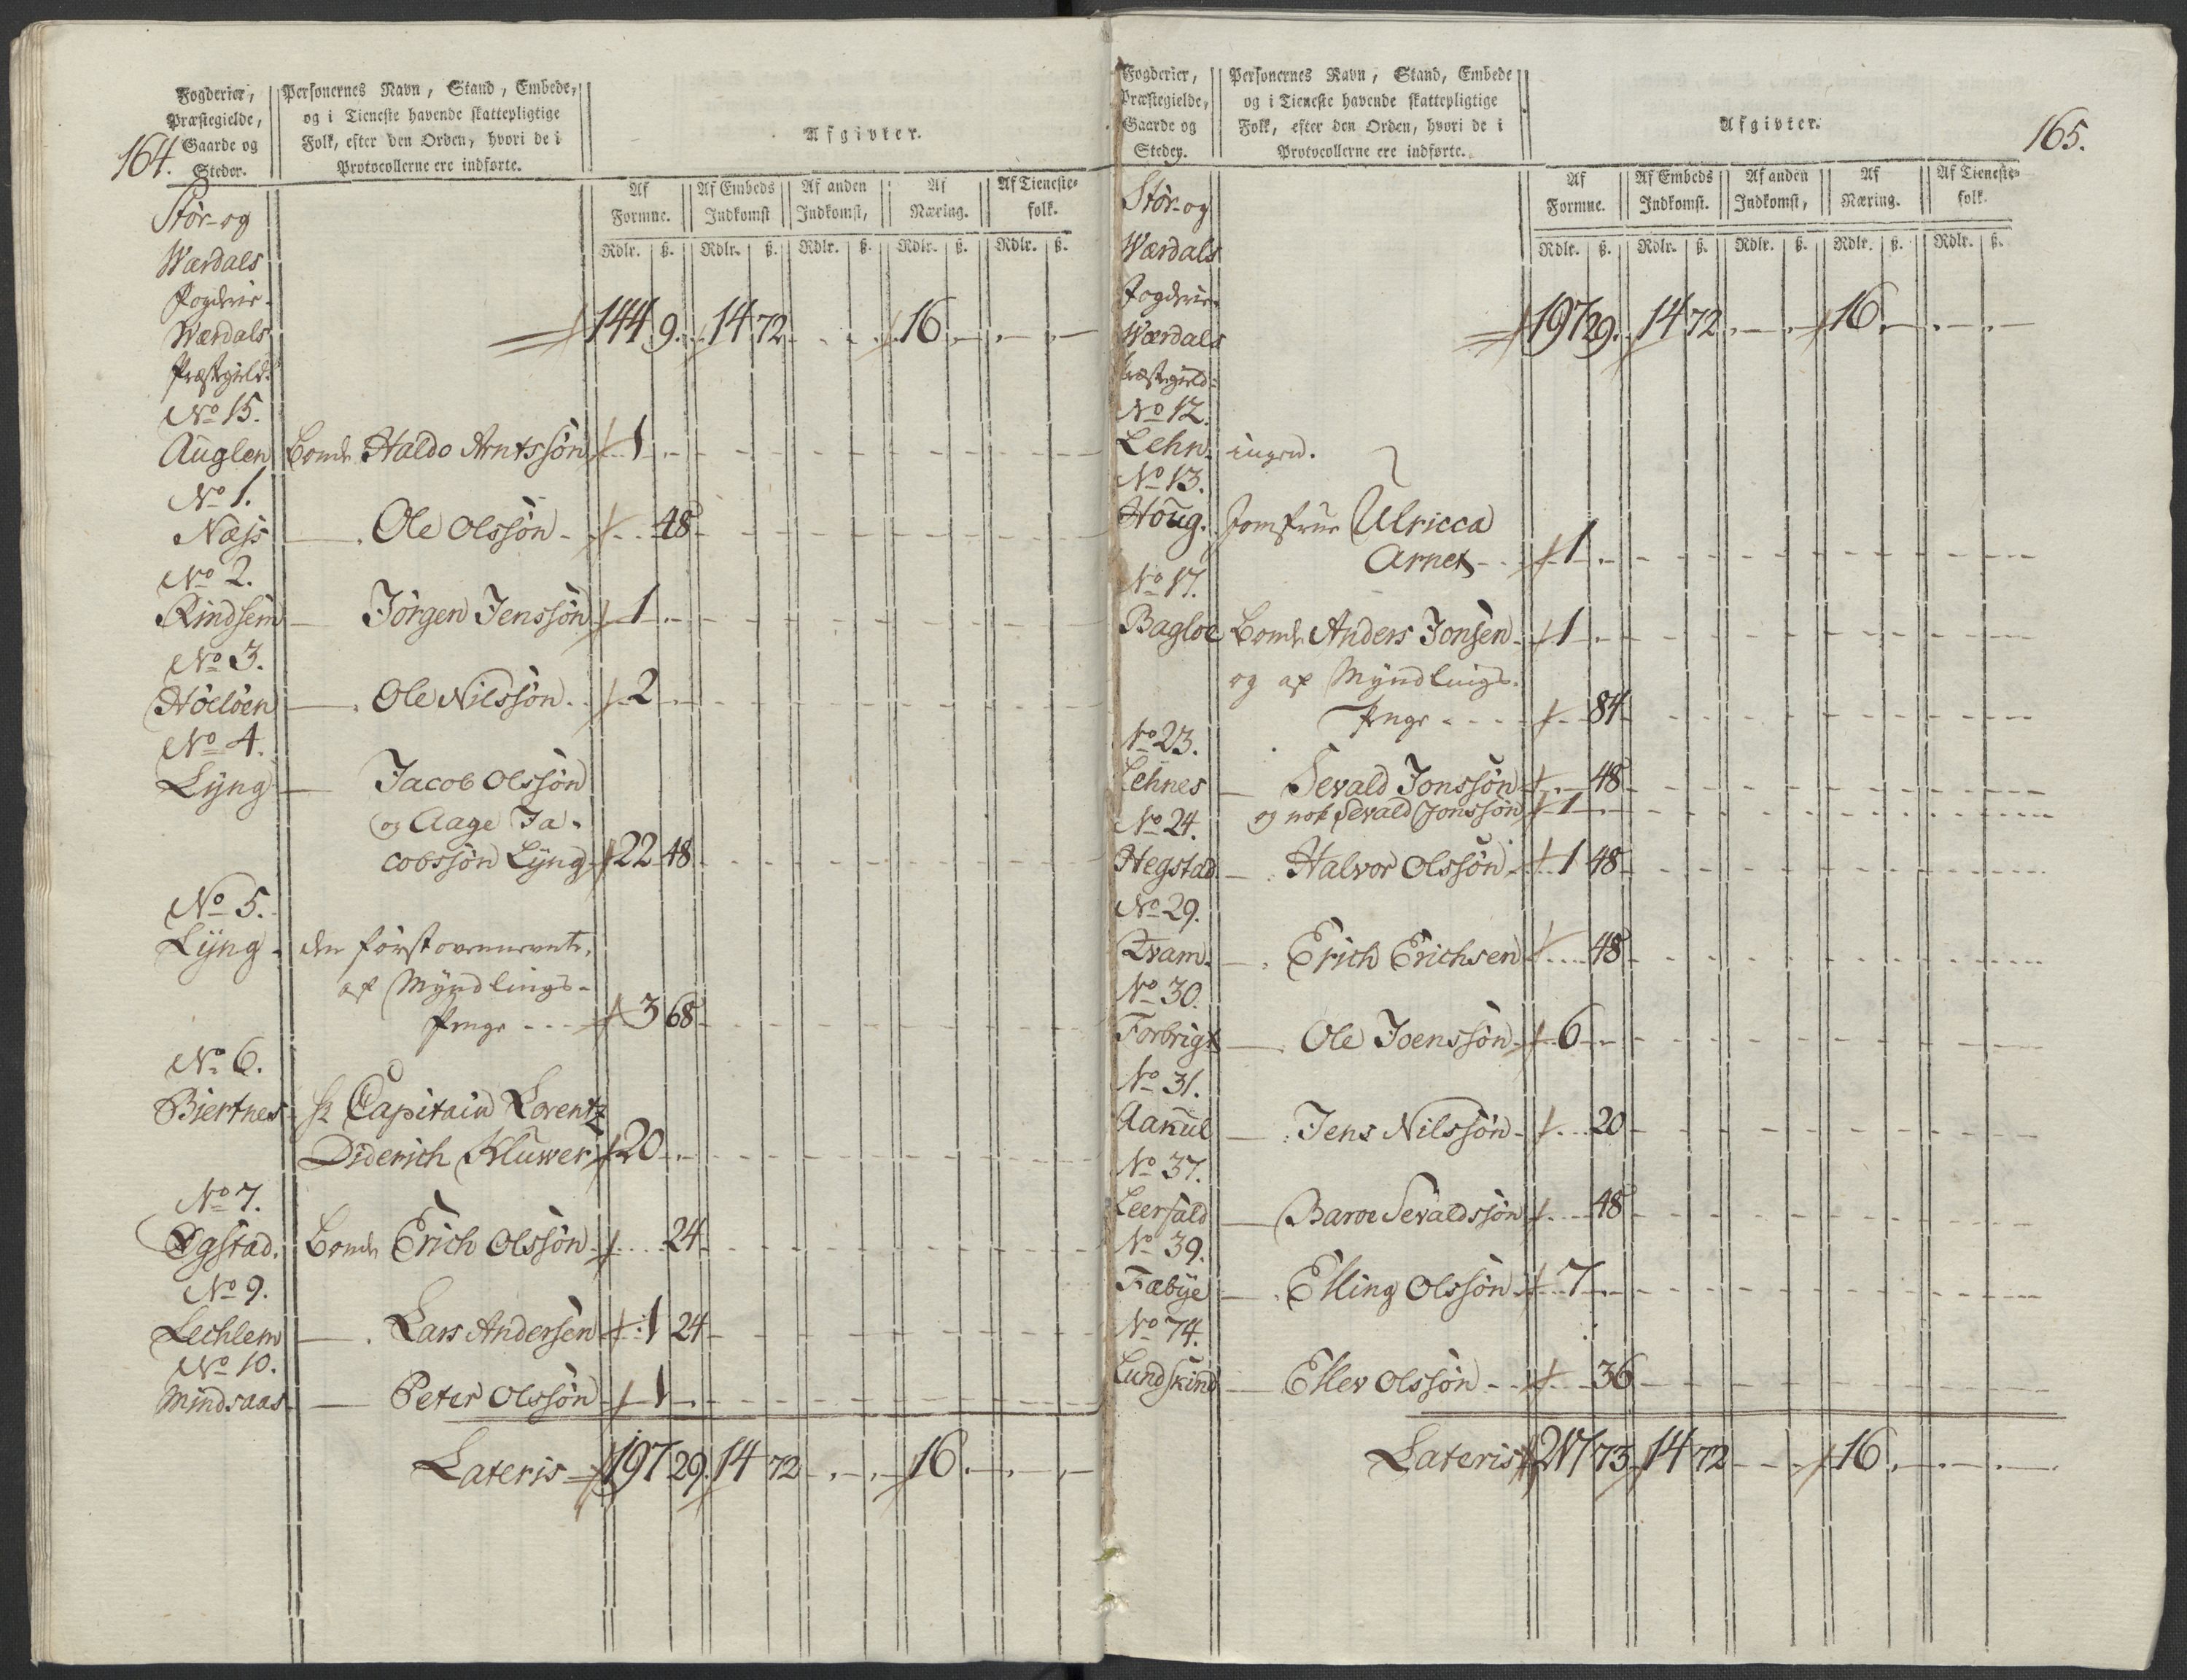 164.
Fogderier,
Præstegielde,
Gaarde og
Steder.
Personernes Navn, Stand, Embede,
og i Tieneste havende skattepligtige
Folk, efter den Orden, hvori de i
Protocollerne ere indførte.
Afgivter.
Af Formue. Af Embeds Indkomst Af anden Indkomst, Af Næring. Af Tienestefolk.
Rdlr. ß. Rdlr. ß. Rdlr. ß. Rdlr. ß. Rdlr. ß.
Stör- og
Wærdals
Fogderie.
Wærdals 144 9. 14 72 16
Præstegield:
No 15.
Auglen Bonde Haldo Arntssön 1
No 1.
Næss — Ole Olssön 48
No 2.
Rindsem — Jörgen Jenssön 1
No 3.
Höelöen — Ole Nilssön 2
No 4.
Lÿng — Jacob Olssön
og Aage Ja-
cobssön Lÿng 22 48
No 5.
Lÿng den först ovennevnte,
af Mÿndlings-
Penge 3 68
No 6.
Biertnes Hr Capitain Lorentz
Diderich Kluwer 20
No 7.
Øgstad. Bonde Erich Olssön 24
No 9.
Lechlem — Lars Andersen 1 24
No 10.
Mindsaas — Peter Olssön 1
Lateris 197 29 14 72 16
165.
Fogderier,
Præstegielde,
Gaarde og
Steder.
Personernes Navn, Stand, Embede
og i Tieneste havende skattepligtige
Folk, efter den Orden, hvori de i
Protocollerne ere indførte.
Afgivter.
Af Formue. Af Embeds Indkomst. Af anden Indkomst, Af Næring. Af Tienestefolk.
Rdlr. ß. Rdlr. ß. Rdlr. ß. Rdlr. ß. Rdlr. ß.
Stör- og
Wærdals
Fogderie.
Wærdals 197 29. 14 72 16
Præstegield:
No 12.
Lehn. ingen.
No 13.
Houg. Jomfrue Ulricca
Arnet 1
No 17.
Bagloe Bonde Anders Jonsen 1
og af Mÿndlings-
Penge 84
No 23.
Lehnes — Sevald Jonssön 48
og nok Sevald Jonssön 1
No 24.
Hegstad — Halvor Olssön 1 48
No 29.
Qvam. — Erich Erichsen 48
No 30.
Forbrigt — Ole Joenssön 6
No 31.
Aakul — Jens Nilssön 20
No 37.
Leerfald — Baroe Sevaldssön 48
No 39.
Fæbÿe — Elling Olssön 7
No 74.
Lundskind — Ellev Olssön 36
Lateris 217 73 14 72 16